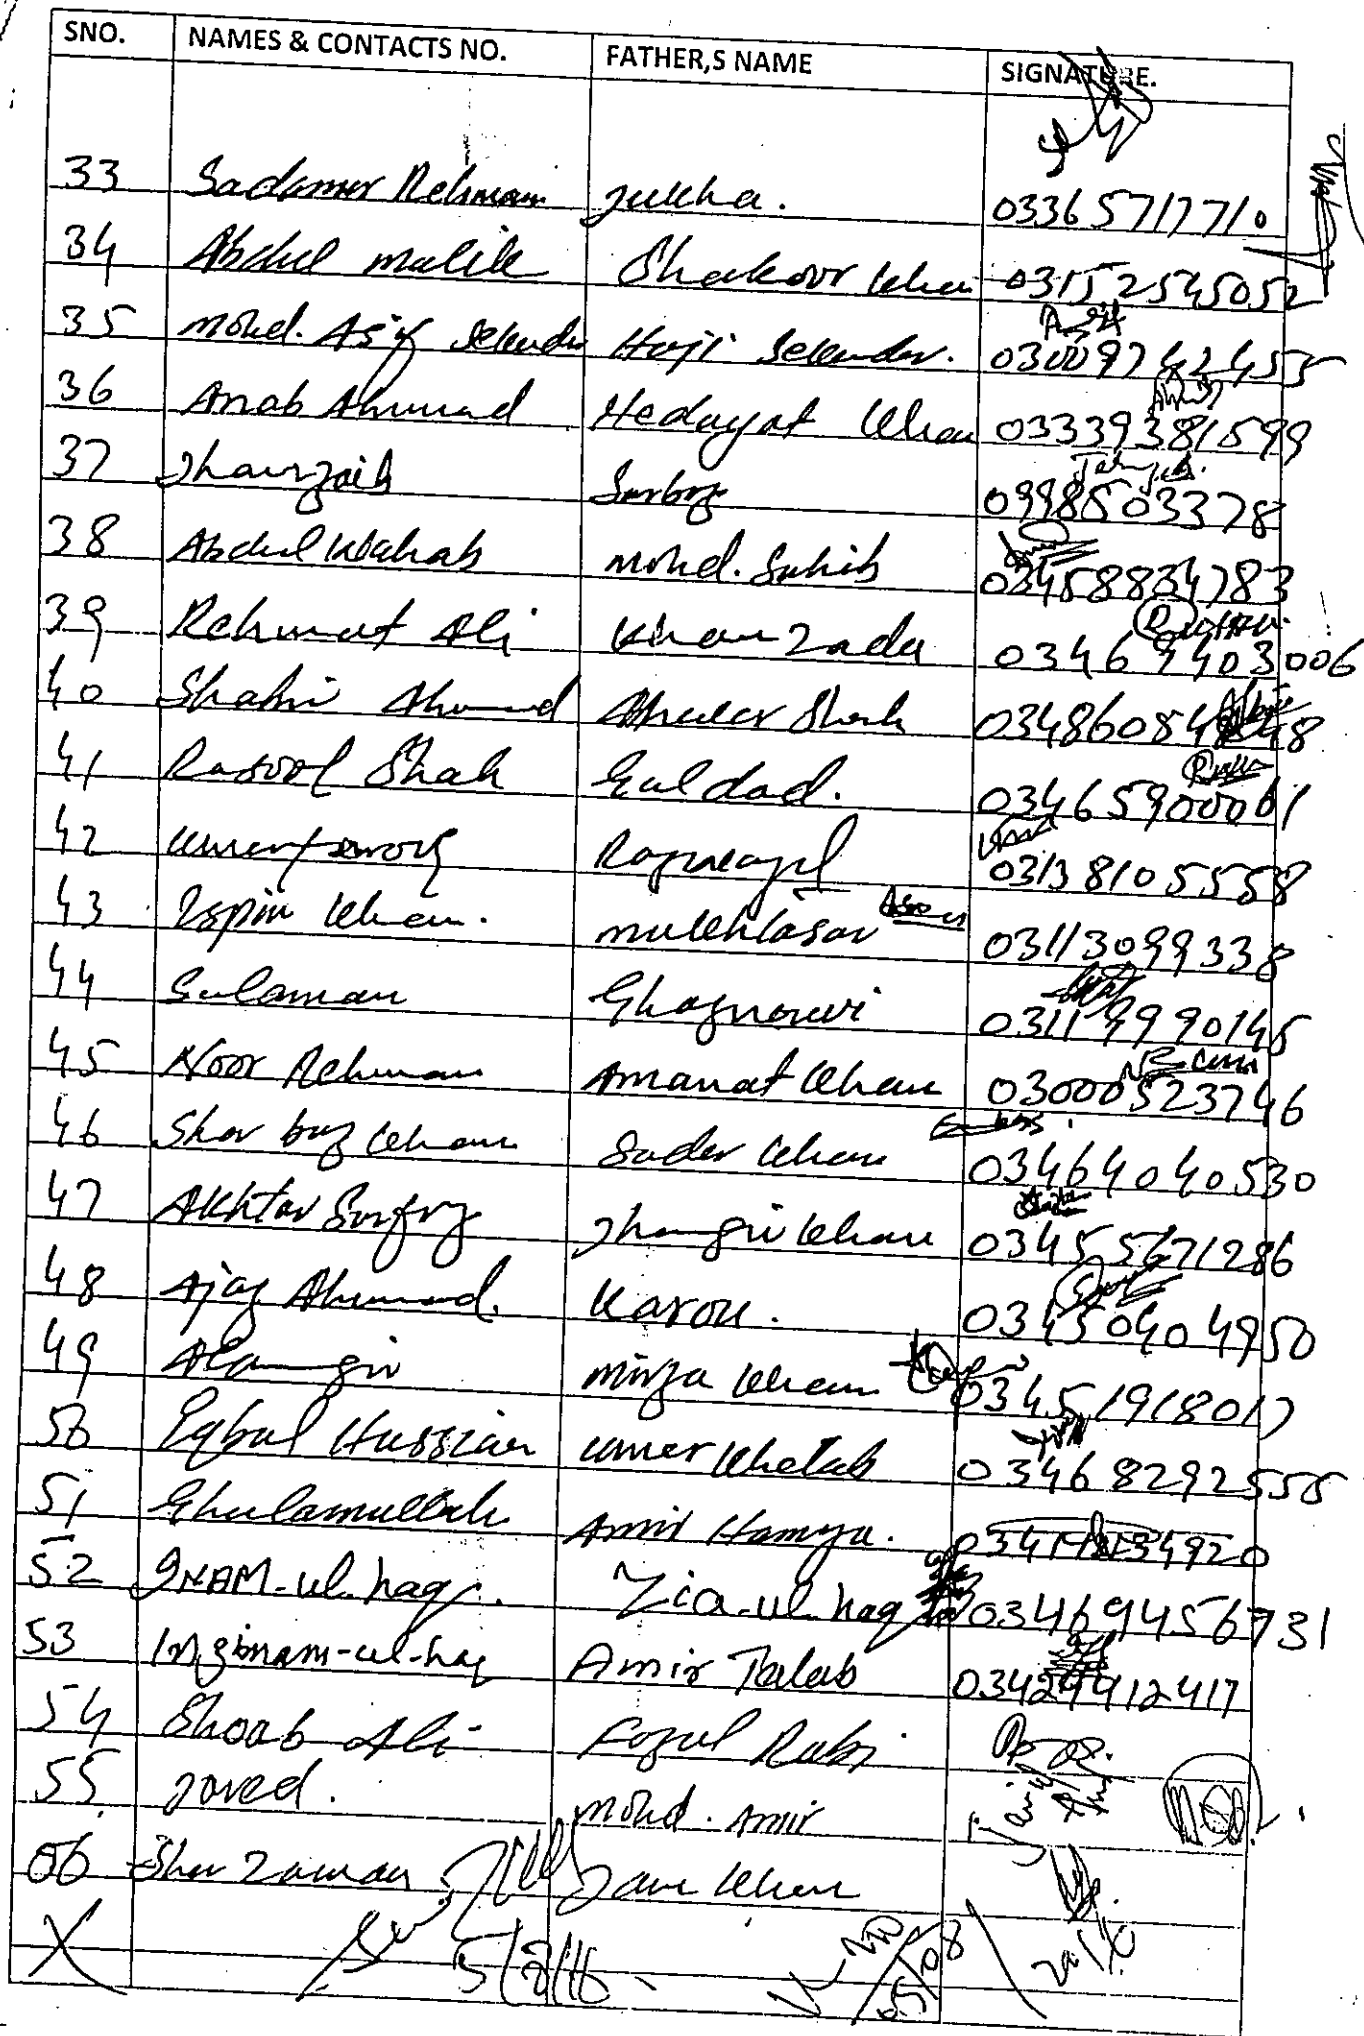 SNO. NAMES & CONTACTS NO. FATHER,S NAME SIGNATURE.
33 Sadamur Rehman 03365717710
34 Abdul malik Shakoor khan 03152545052
35 Mohd. Asif Sekander Haji Sekander. 03009742455
36 Anab Ahmad Hedayat khan 03339381599
37 Jhanzaib Sarboz 09985033278
38 Abdul Wahab Mohd. Sahib 03458834783
39 Rehmat Ali Khan Zada 03469403006
40 Ahmad Shah
41 Rasool Shah Guldad. 03465900061
42 Umer farooq 03138105558
43 Ispin khan. mukhtasar 03113099338
44 Sulaman Ghaznowi 03119990145
45 Noor Rehman Amanat khan 03000523746
46 Sher baz khan Sader khan 03464040530
47 Akhtar Jhangir khan 03455671286
48 Ajaz Ahmad. Karon. 03450404950
49 Alamgir Mirza khan 03451918017
50 Iqbal Hussian Umer Khetab 03468292555
51 Ghulamullah Amir Hamza.
52 INAM-ul-haq. Zia-ul-haq 03469456731
53 Amir Talab 03429912417
54 Shoab Ali Fazul Rabi
55 Javed. Mohd. Amir
56 Sher Zaman Jan khan
5/8/16